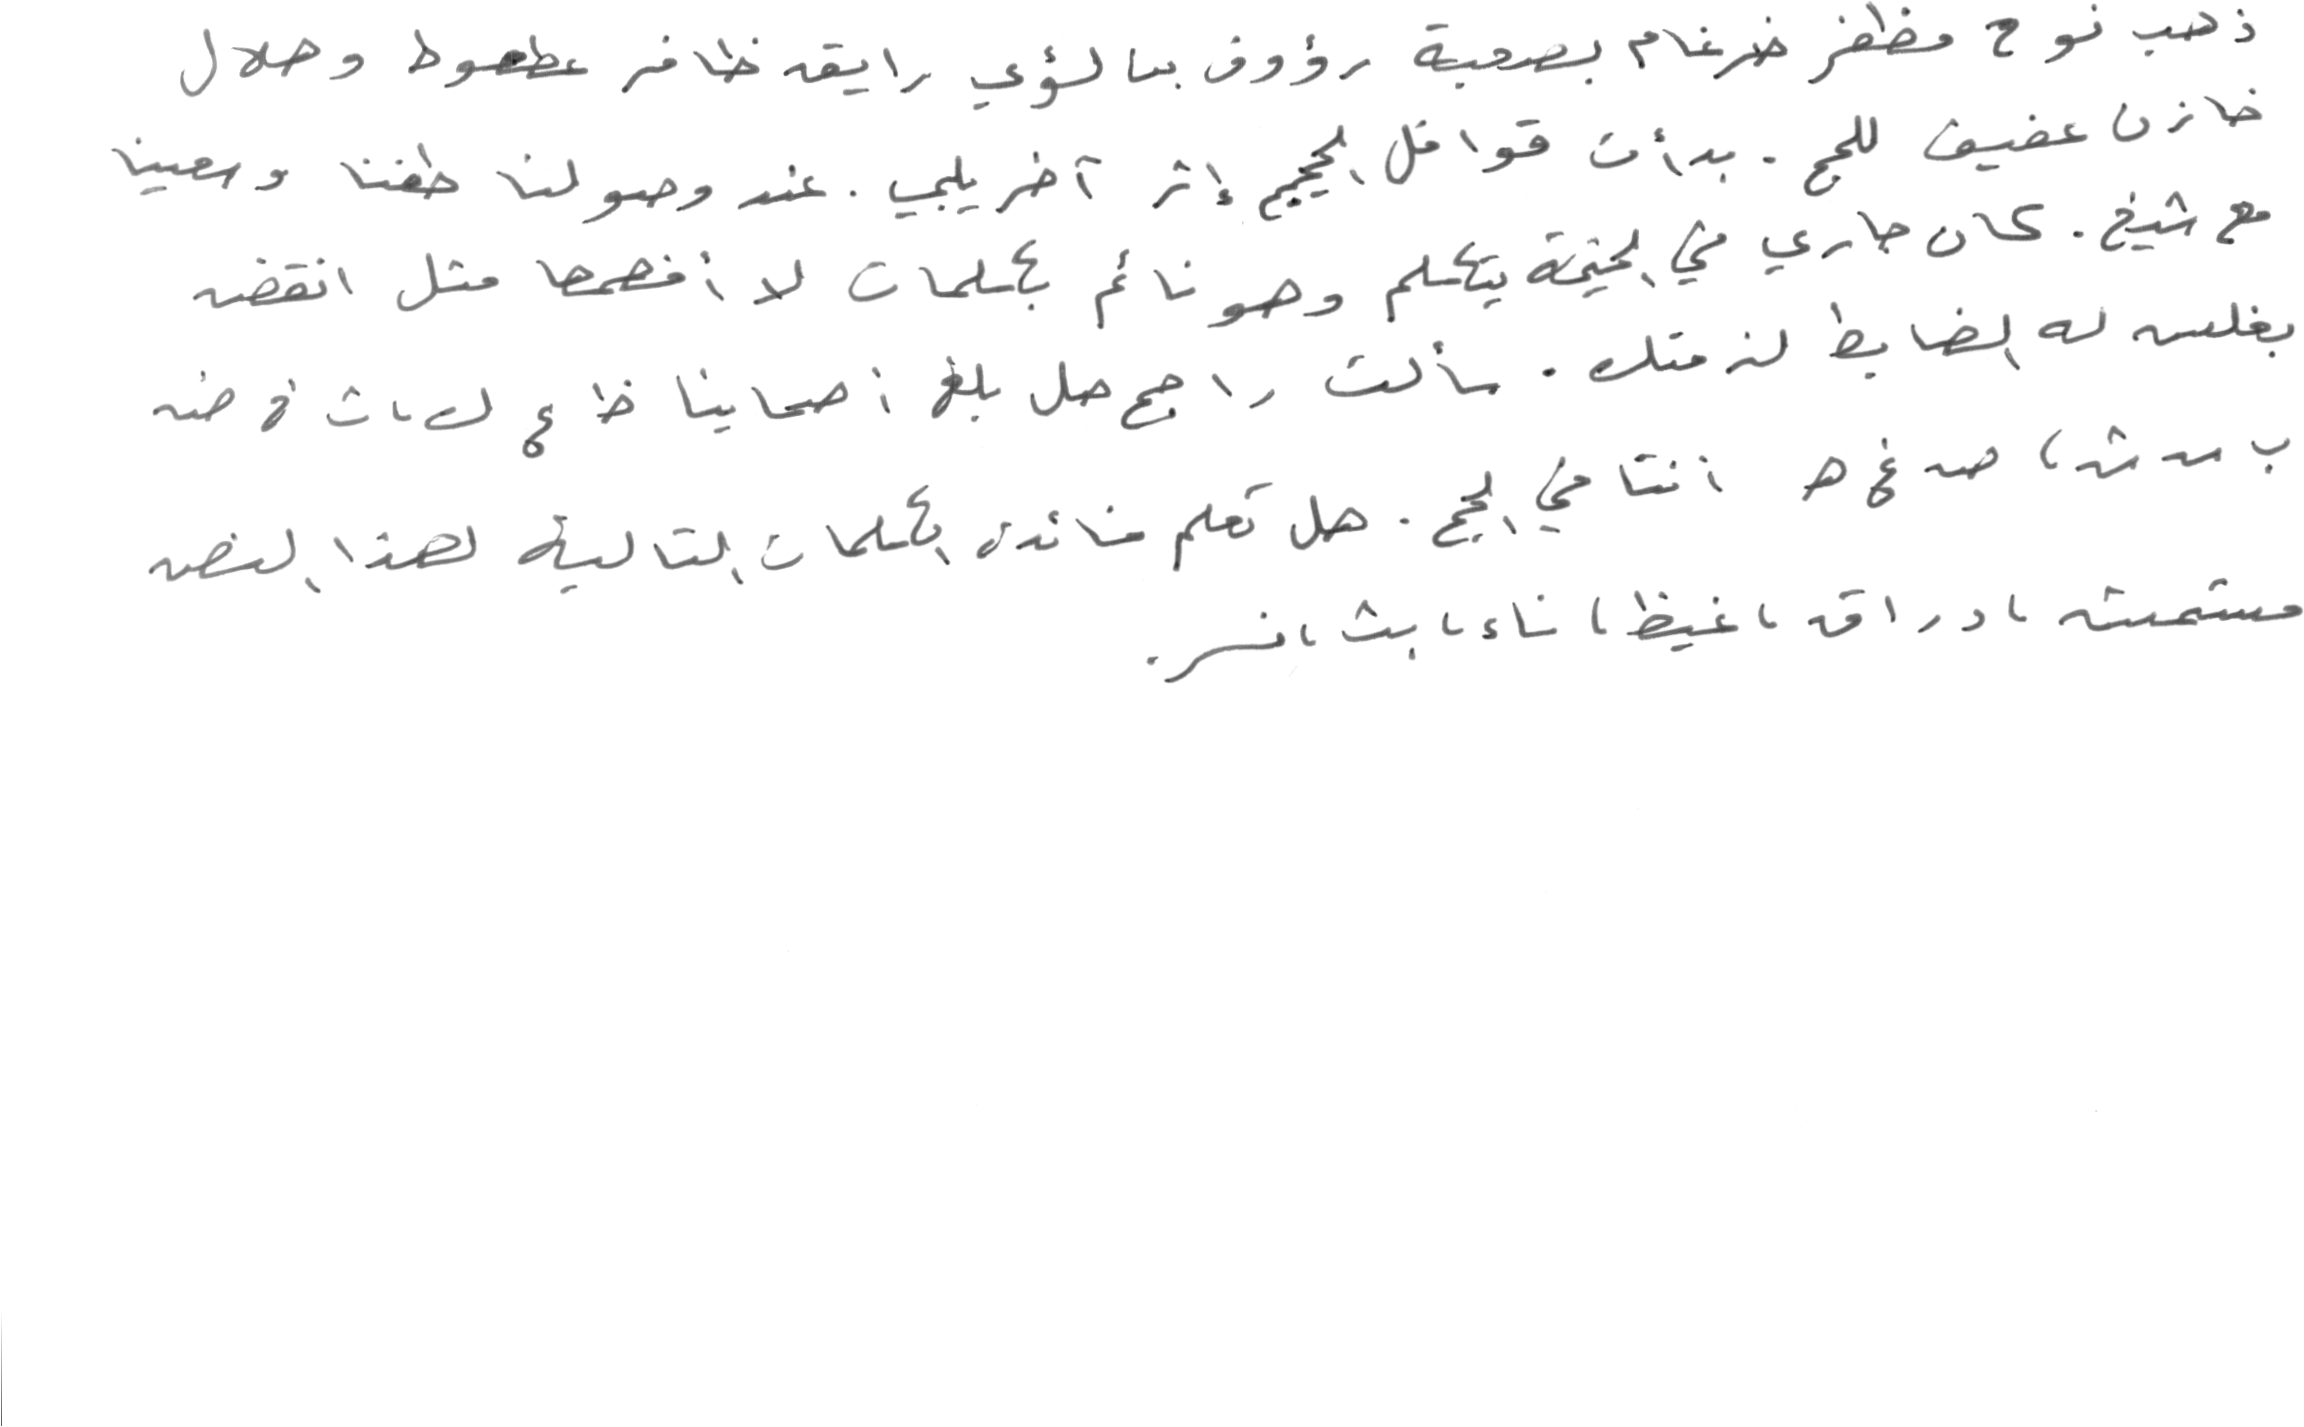 ذهب نوح مظفر ضرغام بصحبة رؤوف بسا لؤي رايق ظافر عطعوط وهلال
خازن عفيف للحج . بدأت قوافل الحجيج إثر آخر يلجب . عند وصولنا طفنا وسعينا
مع شيخ . كان جاري في الخيمة يتكلم وهو نائم بكلمات لا أفهمها مثل انقض
بغلس له الضابط لزمتك . سألت راجح هل بلغ أصحابنا ظ ع ك ، ث خ ض
ب س ش ، ص غ ه أننا في الحج . هل تعلم فائدة الكلمات التالية لهذا النص
مستمش ، دراق ، غيظ ، ناء ، بث ، نسر .